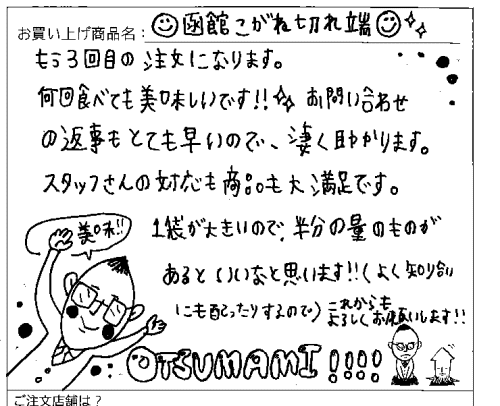 お買い上げ商品名：函館こがね切れ端
もう3回目の注文になります。
何回食べても美味しいです!! お問い合わせ
の返事もとても早いので、凄く助かります。
スタッフさんの対応も商品も大満足です。
1袋が大きいので、半分の量のものが
あるといいなと思います!!(よく知り合い
にも配ったりするので) これからも
よろしくお願いします!!
美味!!
OTSUMAMI!!!!
ご注文店舗は？